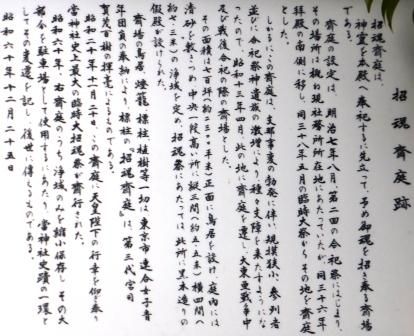 招魂斎庭跡
招魂斎庭は、
神霊を本殿へ奉祀するに先立って、予め御魂を招き奉る斎場
である。
斎庭の設定は、明治七年八月、第二回の合祀祭にはじまり
その場所は概ね現社務所所在地にあたっていたが、同三十六年
拝殿の南側に移し、同三十八年五月の臨時大祭からその地を斎庭
とした。
しかるにこの斎庭は、支那事変の勃発に伴い、規模狭小、参列者
並び、合祀祭神遺族の激増により、種々支障を来たすようにな
ったので、昭和十三年四月、此の地に斎庭を遷し、大東亜戦争中
及び戦後合祀祭の斎場とした。
その面積は七百坪(約二三〇〇平米)正面に鳥居を設け、庭内には
清砂を敷きつめ中央一段高い所に縦三間(約五・五米)横四間(
約七・三米)の浄域を定め、招魂祭にあたっては、此所に黒木造りの
仮殿が設けられた。
斎場の鳥居、燈籠、標柱、植樹等一切は、東京市連合女子青
年団員の奉納により、標柱の『招魂斎庭』は、第三代宮司
賀茂百樹の揮毫によるものである。
昭和二十年十一月二十日、この斎庭に天皇陛下の行幸を仰ぎ奉り
当神社史上最大の臨時大招魂祭が斎行された。
昭和六十年、右斎庭のうち、浄域のみを縮小保存し、その大
部分を駐車場として使用するにあたり、当神社史蹟の一環と
してその変遷を記し、後世に伝えるものである。
昭和六十年十二月二十五日